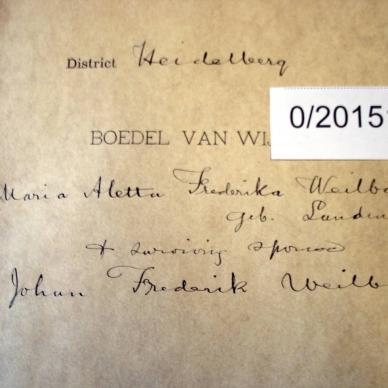 District Heidelberg
0/2015
BOEDEL VAN WIJ
Maria Aletta Frederika Weilb
geb. Landm
& surviving spouse
Johan Frederik Weilb